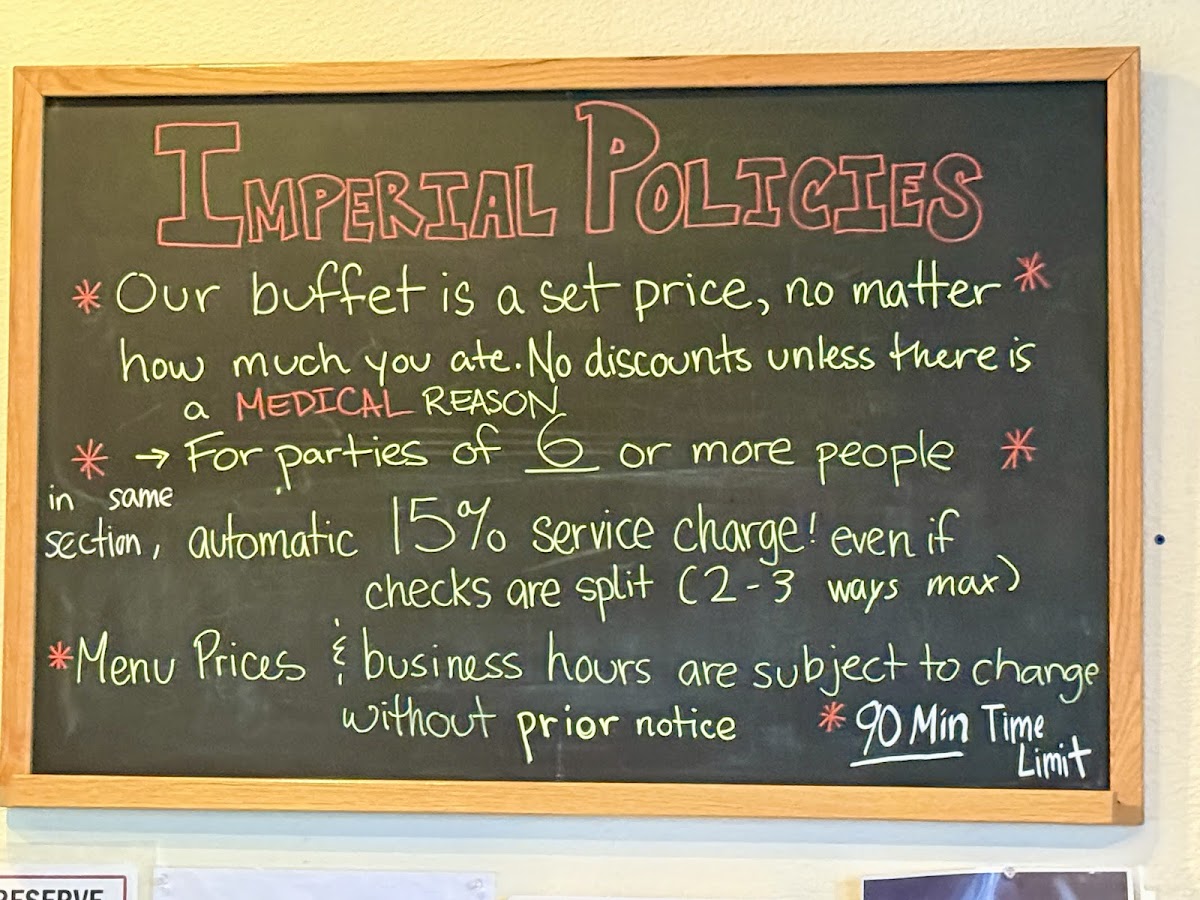 IMPERIAL POLICIES
* Our buffet is a set price, no matter *
how much you ate. No discounts unless there is
a MEDICAL REASON
* → For parties of 6 or more people *
in same
section, automatic 15% service charge! even if
checks are split (2-3 ways max)
*Menu Prices & business hours are subject to change
without prior notice * 90 Min Time
Limit
RESERVE